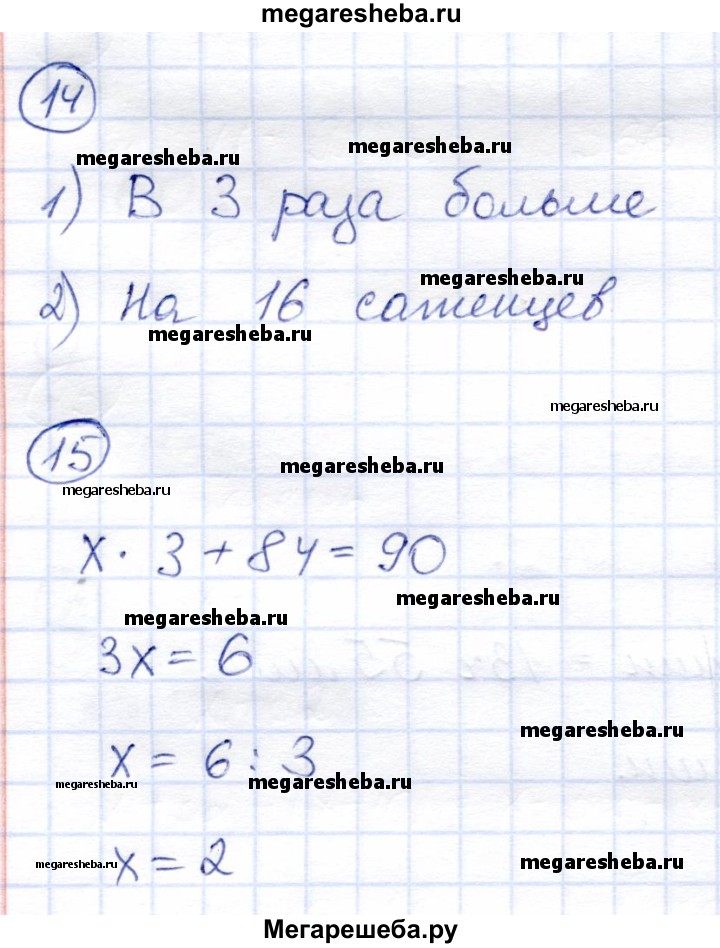 megaresheba.ru
14
megaresheba.ru
megaresheba.ru
1) В 3 раза больше
megaresheba.ru
2) На 16 саженцев
megaresheba.ru
megaresheba.ru
15
megaresheba.ru
megaresheba.ru
x · 3 + 84 = 90
megaresheba.ru
megaresheba.ru
3x = 6
megaresheba.ru
x = 6 : 3
megaresheba.ru
megaresheba.ru
megaresheba.ru
x = 2
megaresheba.ru
Мегарешеба.ру